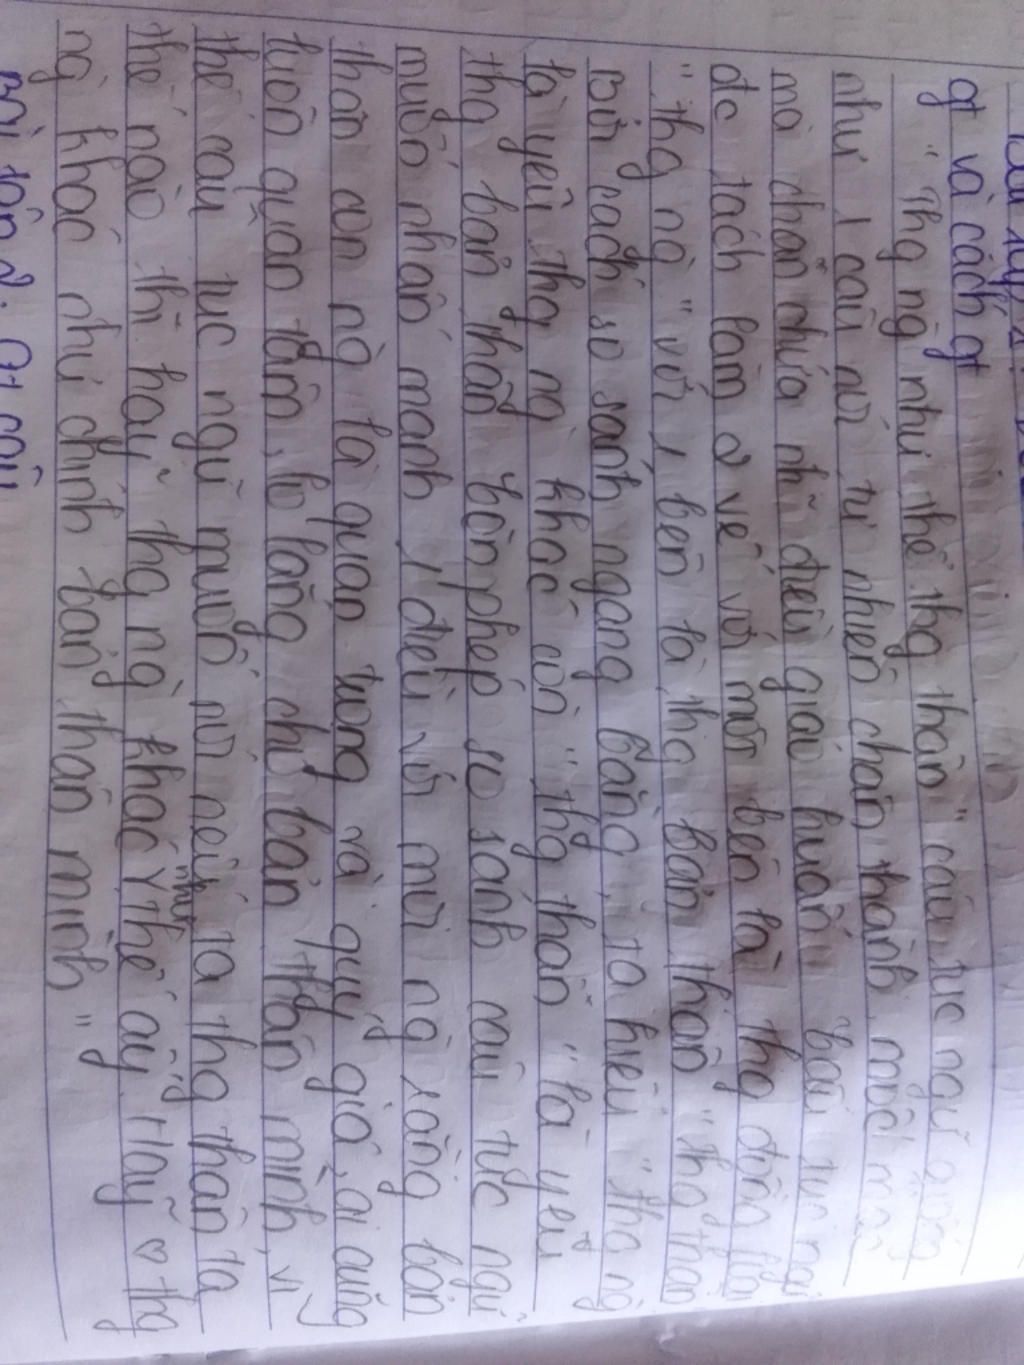 gt và cách gt
"Thg ng như thể thg thân" câu tục ngữ giống
như 1 câu nói tự nhiên chân thành, mộc mạc
mà chẩn chứa nhĩ điều giáo huấn. Câu tục ngữ
đc tách làm 2 vế với một bên là
"thg ng" với 1 bên là thg bản thân "thg thân
Bởi cách so sánh ngang bằng, ta hiểu "thg ng
là yêu thg ng khác còn "thg thân" là yêu
thg bản thân. Còn phép so sánh câu tục ngữ
muốn nhấn mạnh 1 điều với mọi ng rằng bản
thân con ng là quan trọng và quý giá, ai cũng
luôn quan tâm, lo lắng cho bản thân mình, vì
thế câu tục ngữ muốn nói nếu như ta thg thân ta
thế nào thì hãy thg ng khác y thế ấy. Hãy ♡ thg
ng khác như chính bản thân mình"